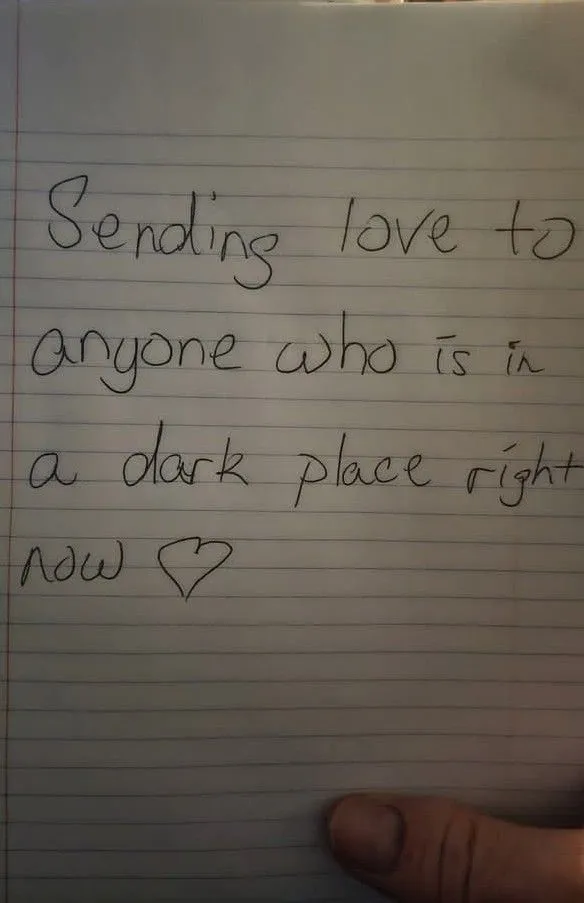 Sending love to
anyone who is in
a dark place right
now ♡